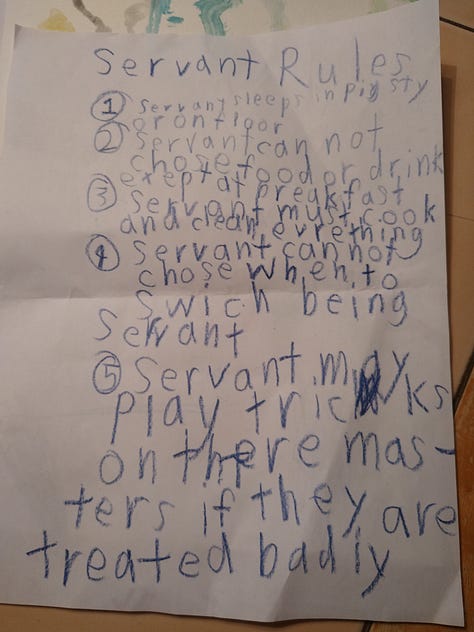 Servant Rules
① Servant sleeps in pig sty
or on floor
② Servant can not
chose food or drink
exept at breakfast
③ Servant must cook
and clean evrething
④ Servant cannot
chose when to
swich being
Servant
⑤ Servant may
play tricks
on there mas-
ters if they are
treated badly